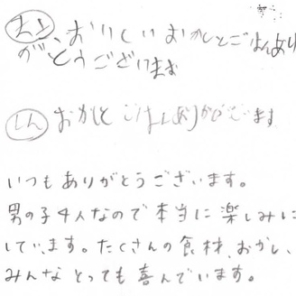 おいしい おかしとごはんあり
がとうございます
しん おかしと ごはんありがとございます
いつもありがとうございます。
男の子4人なので本当に楽しみに
しています。たくさんの食材、おかし、
みんなとっても喜んでいます。